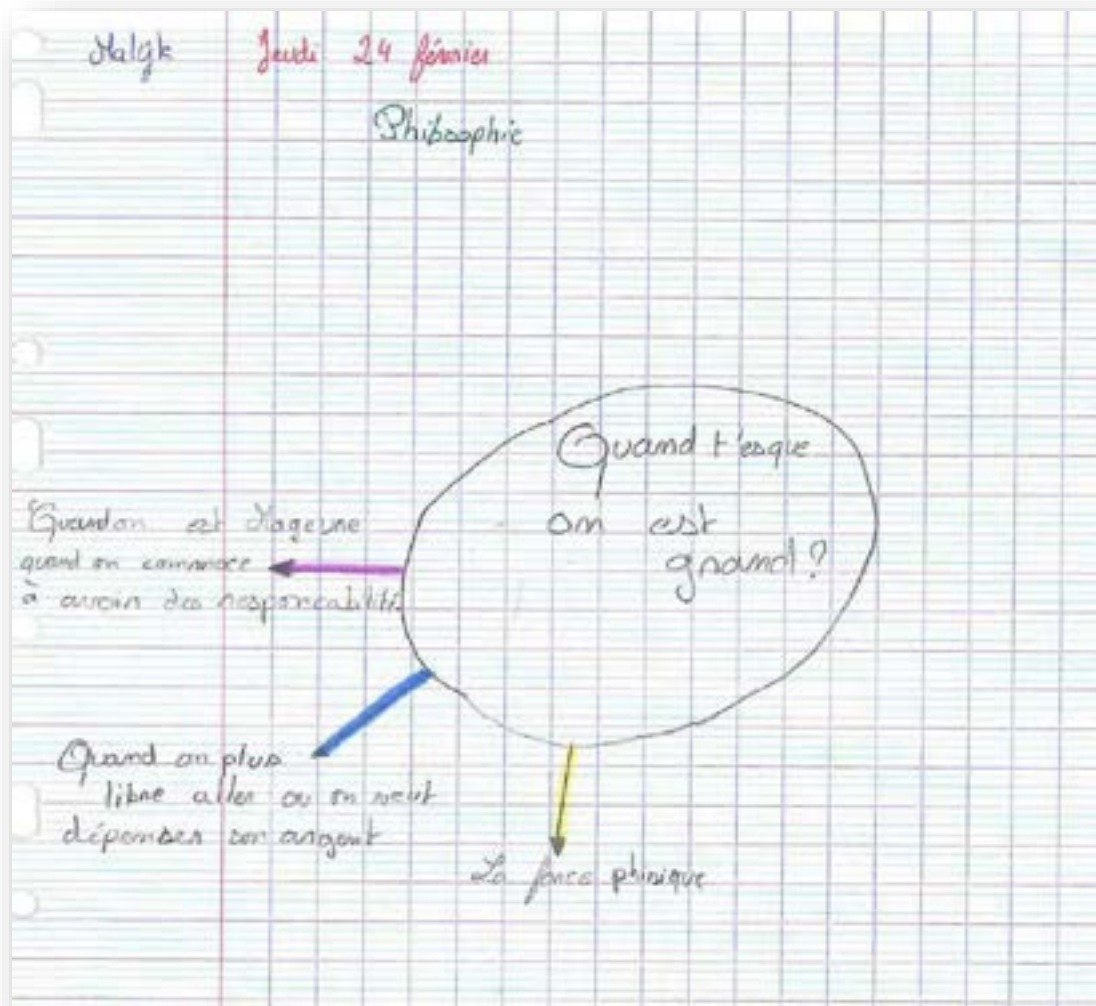 Jeudi 24 février
Philosophie
Quand t'esque
on est
grand?
Quandon est Mageure
quand on commance
à avoir des responcabilités
Quand on plus
libre aller ou on veut
dépenser son argent
La force phisique